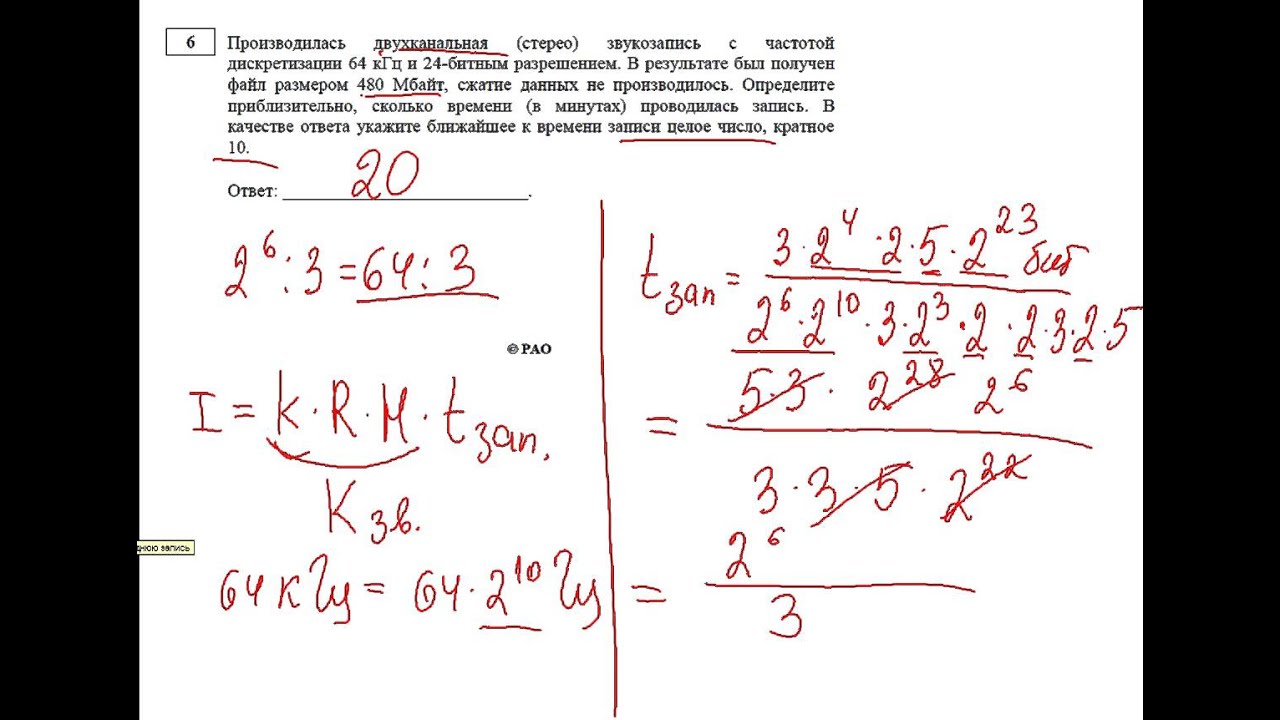 6
Производилась двухканальная (стерео) звукозапись с частотой
дискретизации 64 кГц и 24-битным разрешением. В результате был получен
файл размером 480 Мбайт, сжатие данных не производилось. Определите
приблизительно, сколько времени (в минутах) проводилась запись. В
качестве ответа укажите ближайшее к времени записи целое число, кратное
10.
Ответ: 20.
2^6 : 3 = 64 : 3
© РАО
I = k · R · H · t зап.
K зв.
днюю запись
64 кГц = 64 · 2^10 Гц
t зап = 3 · 2^4 · 2 · 5 · 2^23 бит
2^6 · 2^10 · 3 · 2^3 · 2 · 2 · 3 · 2 · 5
= 5 · 3 · 2^28 2^6
3 · 3 · 5 · 2^22
= 2^6
3